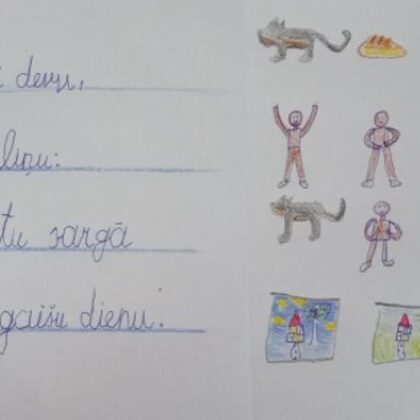 i devu,
liņu:
tu sargā
gaišu dienu.